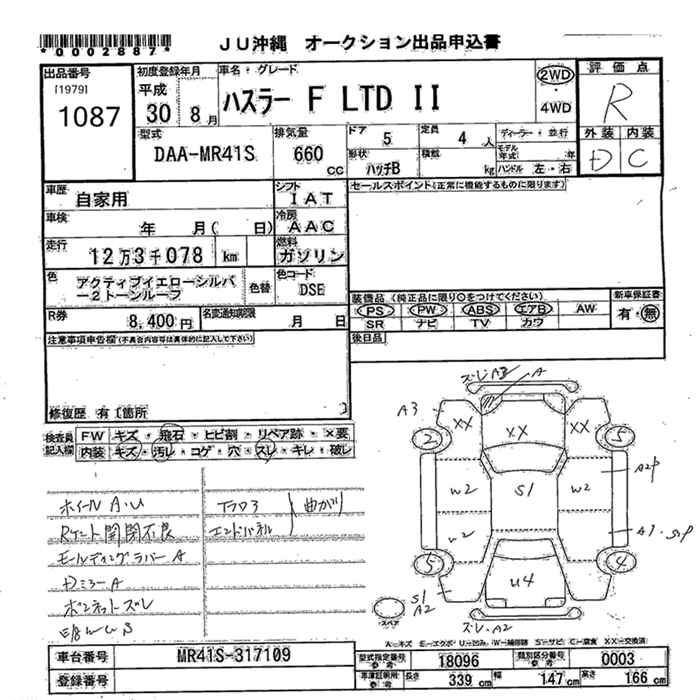 *0002887*
JU沖縄 オークション出品申込書
出品番号
[1979]
1087
初度登録年月
平成
30 年 8 月
車名・グレード
ハスラー F LTD II
2WD
・
4WD
評価点
R
外装 内装
D C
型式
DAA-MR41S
排気量
660 cc
ドア 5
定員 4 人
形状 ハッチB
積載 kg
ディーラー・並行
モデル年式 年
ハンドル 左・右
車歴
自家用
シフト
IAT
セールスポイント(正常に機能するものに限ります)
車検
年 月( 日)
冷房
AAC
走行
12万3千078 km
燃料
ガソリン
色
アクティブイエローシルバ
ー2トーンルーフ
色替
色コード
DSE
装備品(純正品に限り○をつけてください)
新車保証書
PS PW ABS エアB AW
有・無
SR ナビ TV カワ
R券
8,400円
名変通知期限
月 日
後日品
注意事項申告欄(不具合内容等は具体的に記入して下さい)
修復歴 有 1箇所
検査員
記入欄
FW キズ・飛石・ヒビ割・リペア跡・×要
内装 キズ・汚レ・コゲ・穴・スレ・キレ・破レ
ホイール A.U
Rゲート開閉不良
モールディングラバー A
Dミラー A
ボンネットズレ
フロア
エンドパネル
曲がり
ズレ A3
A
A3
XX
XX
XX
2
5
W2
S1
W2
A2P
W2
5
4
U4
S1
A2
ズレ.A2
スペア
A=キズ E=エクボ U=凹み W=補修跡 S=サビ C=腐食 XX=交換済
車台番号
MR41S-317109
型式指定番号
参考
18096
類別区分番号
参考
0003
登録番号
車庫証明用
参考
長さ 339 cm
幅 147 cm
高さ 166 cm